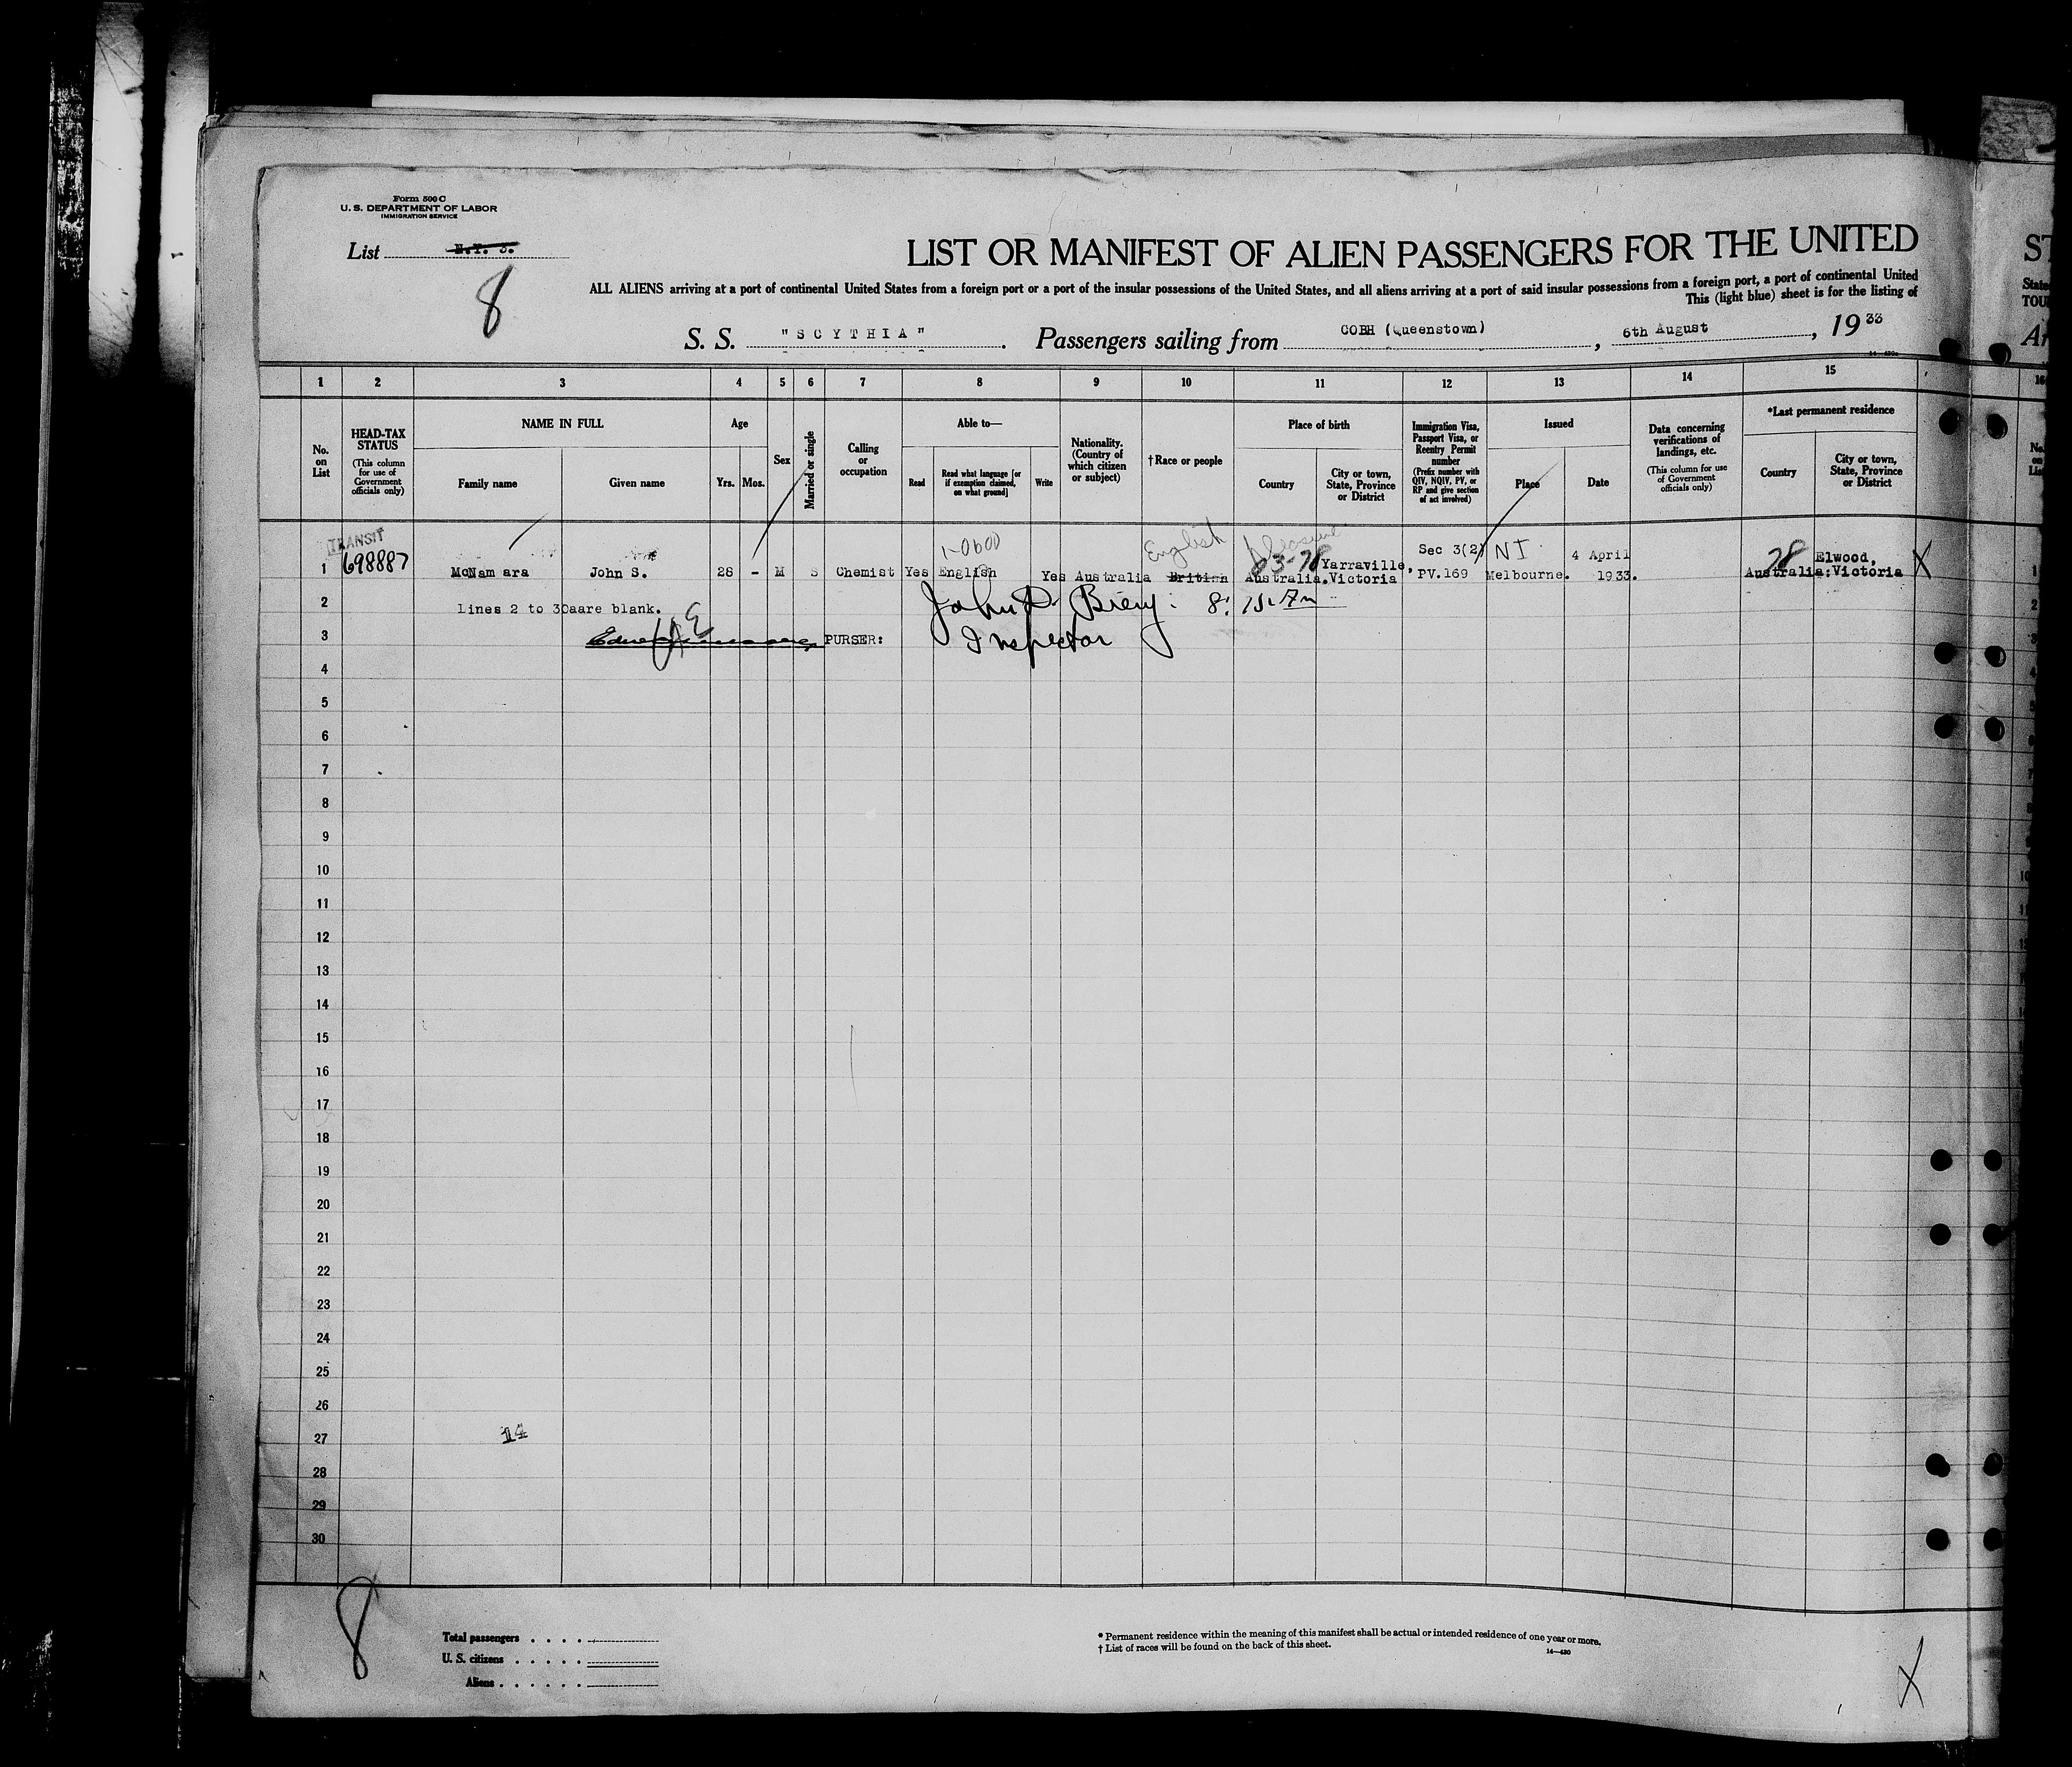 Form 500 C
U. S. DEPARTMENT OF LABOR
IMMIGRATION SERVICE
List N.Y. 3.
8
LIST OR MANIFEST OF ALIEN PASSENGERS FOR THE UNITED
ALL ALIENS arriving at a port of continental United States from a foreign port or a part of the insular possessions of the United States, and all aliens arriving at a port of said insular possessions from a foreign port, a port of continental United
This (light blue) sheet is for the listing of
S. S. "SCYTHIA". Passengers sailing from COBH (Queenstown), 6th August, 1933
1 2 3 4 5 6 7 8 9 10 11 12 13 14 15
No. on List
HEAD-TAX STATUS (This column for use of Government officials only)
NAME IN FULL
Family name
Given name
Age
Yrs. Mos.
Sex
Married or single
Calling or occupation
Able to—
Read
Read what language [or if exemption claimed, on what ground]
Write
Nationality. (Country of which citizen or subject)
†Race or people
Place of birth
Country
City or town, State, Province or District
Immigration Visa, Passport Visa, or Reentry Permit number (Prefix number with QIV, NQIV, PV, or RP and give section of act involved)
Issued
Place
Date
Data concerning verifications of landings, etc. (This column for use of Government officials only)
*Last permanent residence
Country
City or town, State, Province or District
TRANSIT
698887
English
83-78 Yarraville, Sec 3(2) NI 4 April 78 Elwood, X
1 McNam ara John S. 28 - M S Chemist Yes English Yes Australia British Australia. Victoria PV.169 Melbourne. 1933. Australia: Victoria
2 Lines 2 to 30aare blank.
3 PURSER: Inspector
4
5
6
7
8
9
10
11
12
13
14
15
16
17
18
19
20
21
22
23
24
25
26
27 14
28
29
30
8
Total passengers
U. S. citizens
Aliens
* Permanent residence within the meaning of this manifest shall be actual or intended residence of one year or more.
† List of races will be found on the back of this sheet.
14—430
X